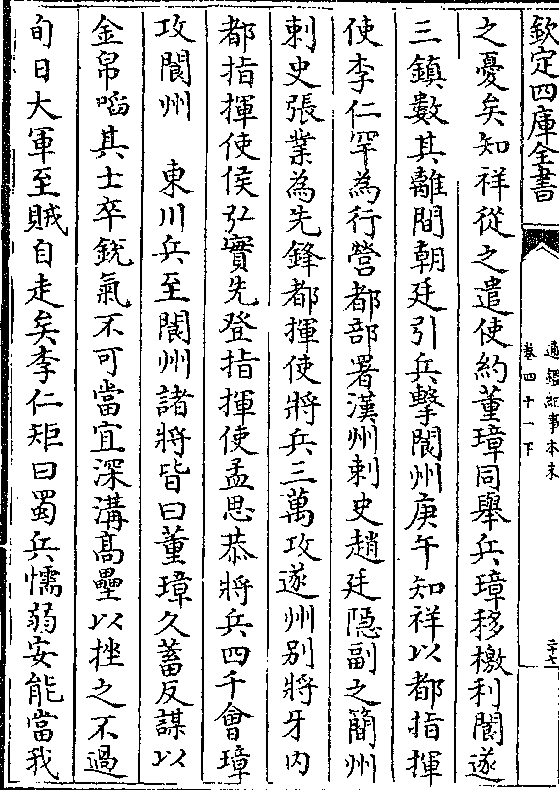 欽定四庫全書
通鑑紀事本末
卷四十一下
三十七
之憂矣知祥從之遣使約董璋同舉兵璋移檄利閬遂
三鎮數其離間朝廷引兵擊閬州庚午知祥以都指揮
使李仁罕為行營都部署漢州刺史趙廷隱副之簡州
刺史張業為先鋒都揮使將兵三萬攻遂州别將牙内
都指揮使侯弘實先登指揮使孟思恭將兵四千會璋
攻閬州　東川兵至閬州諸將皆曰董璋久蓄反謀以
金帛啗其士卒銳氣不可當宜深溝髙壘以挫之不過
旬日大軍至賊自走矣李仁矩曰蜀兵懦弱安能當我